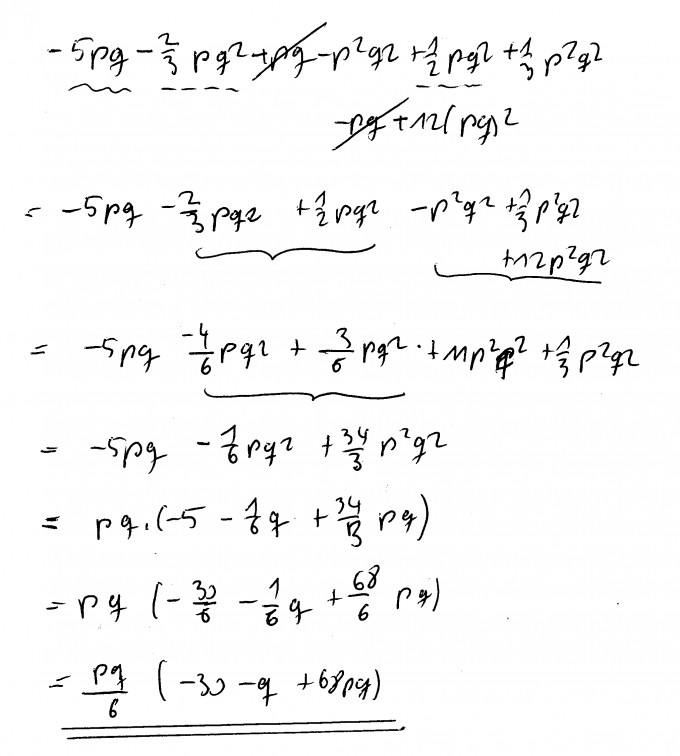 -5pq - 2/3 pq² + pq - p²q² + 1/2 pq² + 1/3 p²q²
-pq + 12(pq)²
= -5pq - 2/3 pq² + 1/2 pq² - p²q² + 1/3 p²q²
+12p²q²
= -5pq -4/6 pq² + 3/6 pq² + 11p²q² + 1/3 p²q²
= -5pq - 1/6 pq² + 34/3 p²q²
= pq · (-5 - 1/6 q + 34/3 pq)
= pq (-30/6 - 1/6 q + 68/6 pq)
= pq/6 (-30 - q + 68pq)